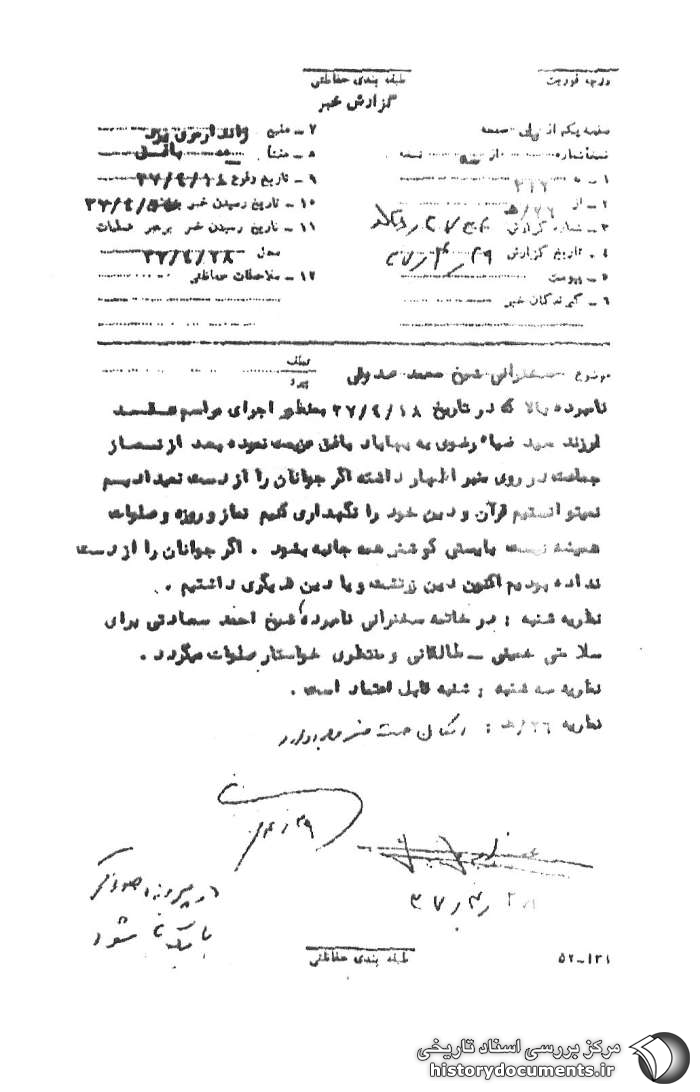 درجه فوریت
طبقه بندی حفاظتی
گزارش خبر
صفحه یکم از یک صفحه
نسخه شماره از سه نسخه
۱ - به ۳۱۲
۲ - از ۲۶/ه
۳ - شماره گزارش
۴ - تاریخ گزارش ۳۷/۴/۲۹
۵ - پیوست
۶ - گیرندگان خبر
۷ - منبع ژاندارمری یزد
۸ - منشا بافق
۹ - تاریخ وقوع ۳۷/۴/۱۸
۱۰ - تاریخ رسیدن خبر
۱۱ - تاریخ رسیدن خبر برهبر عملیات
محل ۳۷/۴/۲۸
۱۲ - ملاحظات حفاظتی
موضوع سخنرانی شیخ محمد صدوقی
عطف
پیرو
نامبرده بالا که در تاریخ ۳۷/۴/۱۸ بمنظور اجرای مراسم عقد
فرزند سید ضیاء رضوی به بهاباد بافق عزیمت نموده بعد از نماز
جماعت در روی منبر اظهار داشته اگر جوانان را از دست نمیدادیم
نمیتوانستیم قرآن و دین خود را نگهداری کنیم نماز و روزه و صلوات
همیشه نیست بایستی کوشش همه جانبه بشود . اگر جوانان را از دست
نداده بودیم اکنون دین زرتشت و یا دین دیگری داشتیم .
نظریه شنبه : در خاتمه سخنرانی نامبرده شیخ احمد سعادتی برای
سلامتی خمینی - طالقانی و منتظری خواستار صلوات میگردد .
نظریه سه شنبه : شنبه قابل اعتماد است .
نظریه ۲۶/ه : امکان صحت خبر وجود دارد
۴/۲۹
۳۷/۴/۲۸
در پرونده صدوقی
بایگانی شود
طبقه بندی حفاظتی
۵۲-۱۳۱
مرکز بررسی اسناد تاریخی
historydocuments.ir